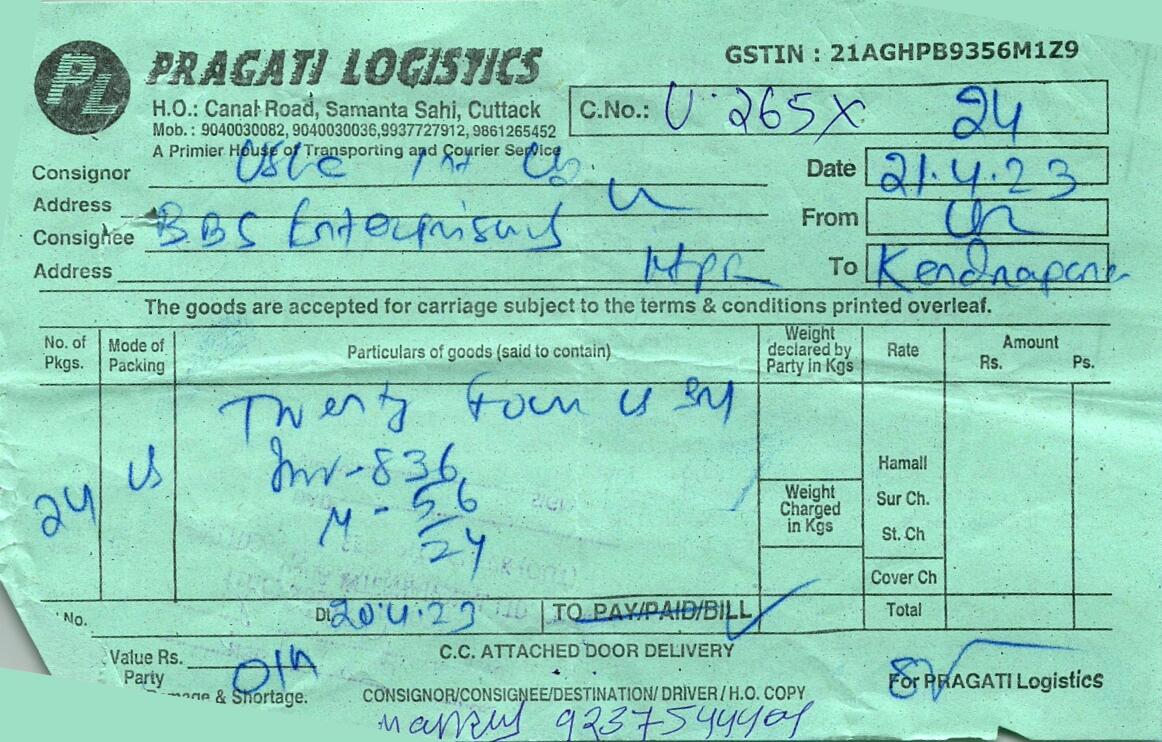 PL PRAGATI LOGISTICS
GSTIN : 21AGHPB9356M1Z9
H.O.: Canal Road, Samanta Sahi, Cuttack
Mob. : 9040030082, 9040030036,9937727912, 9861265452
A Primier House of Transporting and Courier Service
C.No.: U 265X 24
Consignor
Date 21.4.23
Address
From
Consignee BBS Enterprises
Address
To Kendrapara
The goods are accepted for carriage subject to the terms & conditions printed overleaf.
No. of Pkgs. Mode of Packing Particulars of goods (said to contain) Weight declared by Party in Kgs Rate Amount Rs. Ps.
Twenty Four
Inv-836
24
M - 56
24
Hamall
Weight Charged in Kgs
Sur Ch.
St. Ch
Cover Ch
No. Dt. 20.4.23 TO PAY/PAID/BILL Total
Value Rs.
C.C. ATTACHED DOOR DELIVERY
Party
For PRAGATI Logistics
mage & Shortage.
CONSIGNOR/CONSIGNEE/DESTINATION/ DRIVER / H.O. COPY